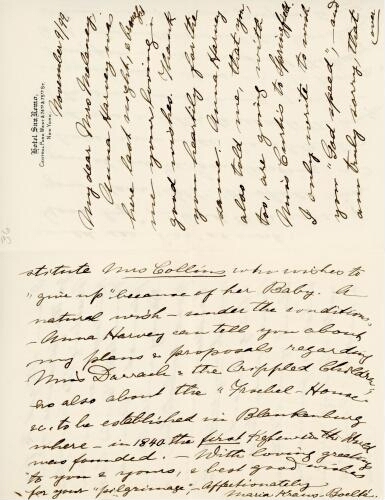 Hotel San Remo,
Central Park West & 74th & 75th St.
New York.
November 9/
My dear Mrs
Anna Harvey was
here last night, &
me your loving
good wishes. Thank
you heartily for the
same. Anna Harvey
also told me, that you,
too, are going with
Miss Curtis to Springfield.
I only write to wish
you "God speed" – and
am truly sorry, that
stitute Mrs Collins who wishes to
"give up" because of her Baby. A
natural wish – under the conditions.
– Anna Harvey can tell you about
my plans & proposals regarding
Miss Darrach & the Crippled Children,
so also about the "Froebel-House"
&c. to be established in Blankenburg
where – in 1840 the first Kigten in the World
was founded. – With loving greetings
to you & yours, & best good wishes
for your "pilgrimage" – Affectionately
Maria Kraus-Boelté
36